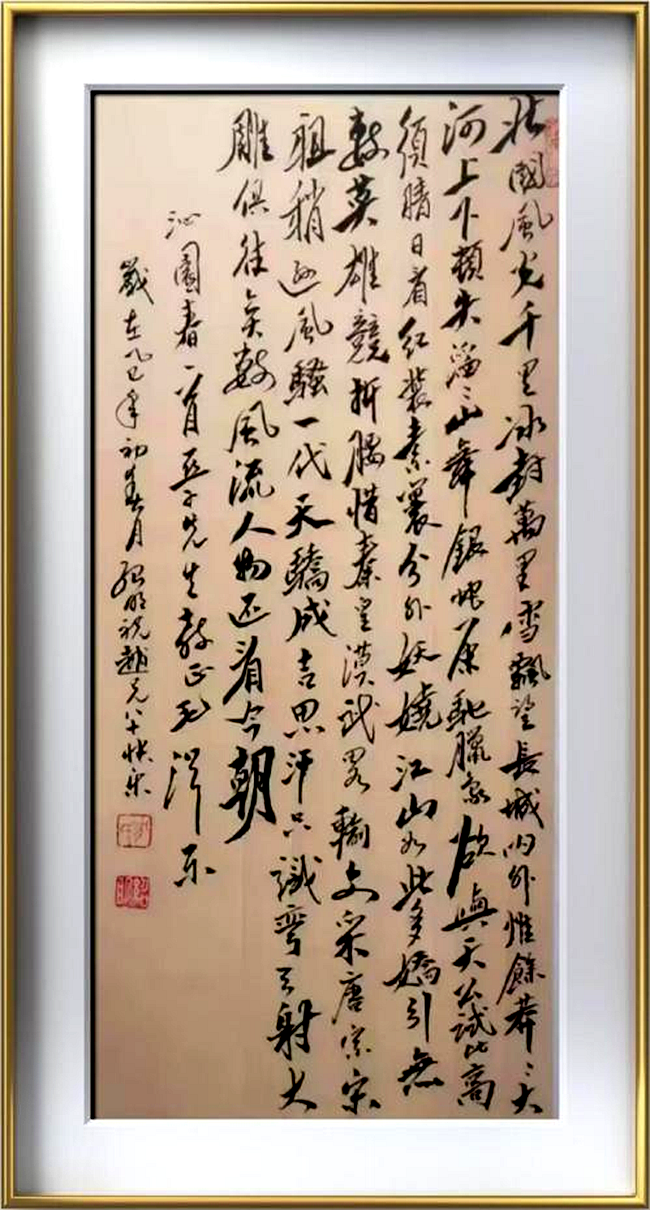 北國風光千里冰封萬里雪飄望長城內外惟餘莽〻大
河上下頓失滔〻山舞銀蛇原馳臘象欲與天公試比高
須晴日看紅裝素裹分外妖嬈江山如此多嬌引無
數英雄競折腰惜秦皇漢武略輸文采唐宗宋
祖稍遜風騷一代天驕成吉思汗只識彎弓射大
雕俱往矣數風流人物还看今朝
沁園春一首亞子先生教正毛澤东
歲在乙巳年初春月明祝趙兄八十快乐